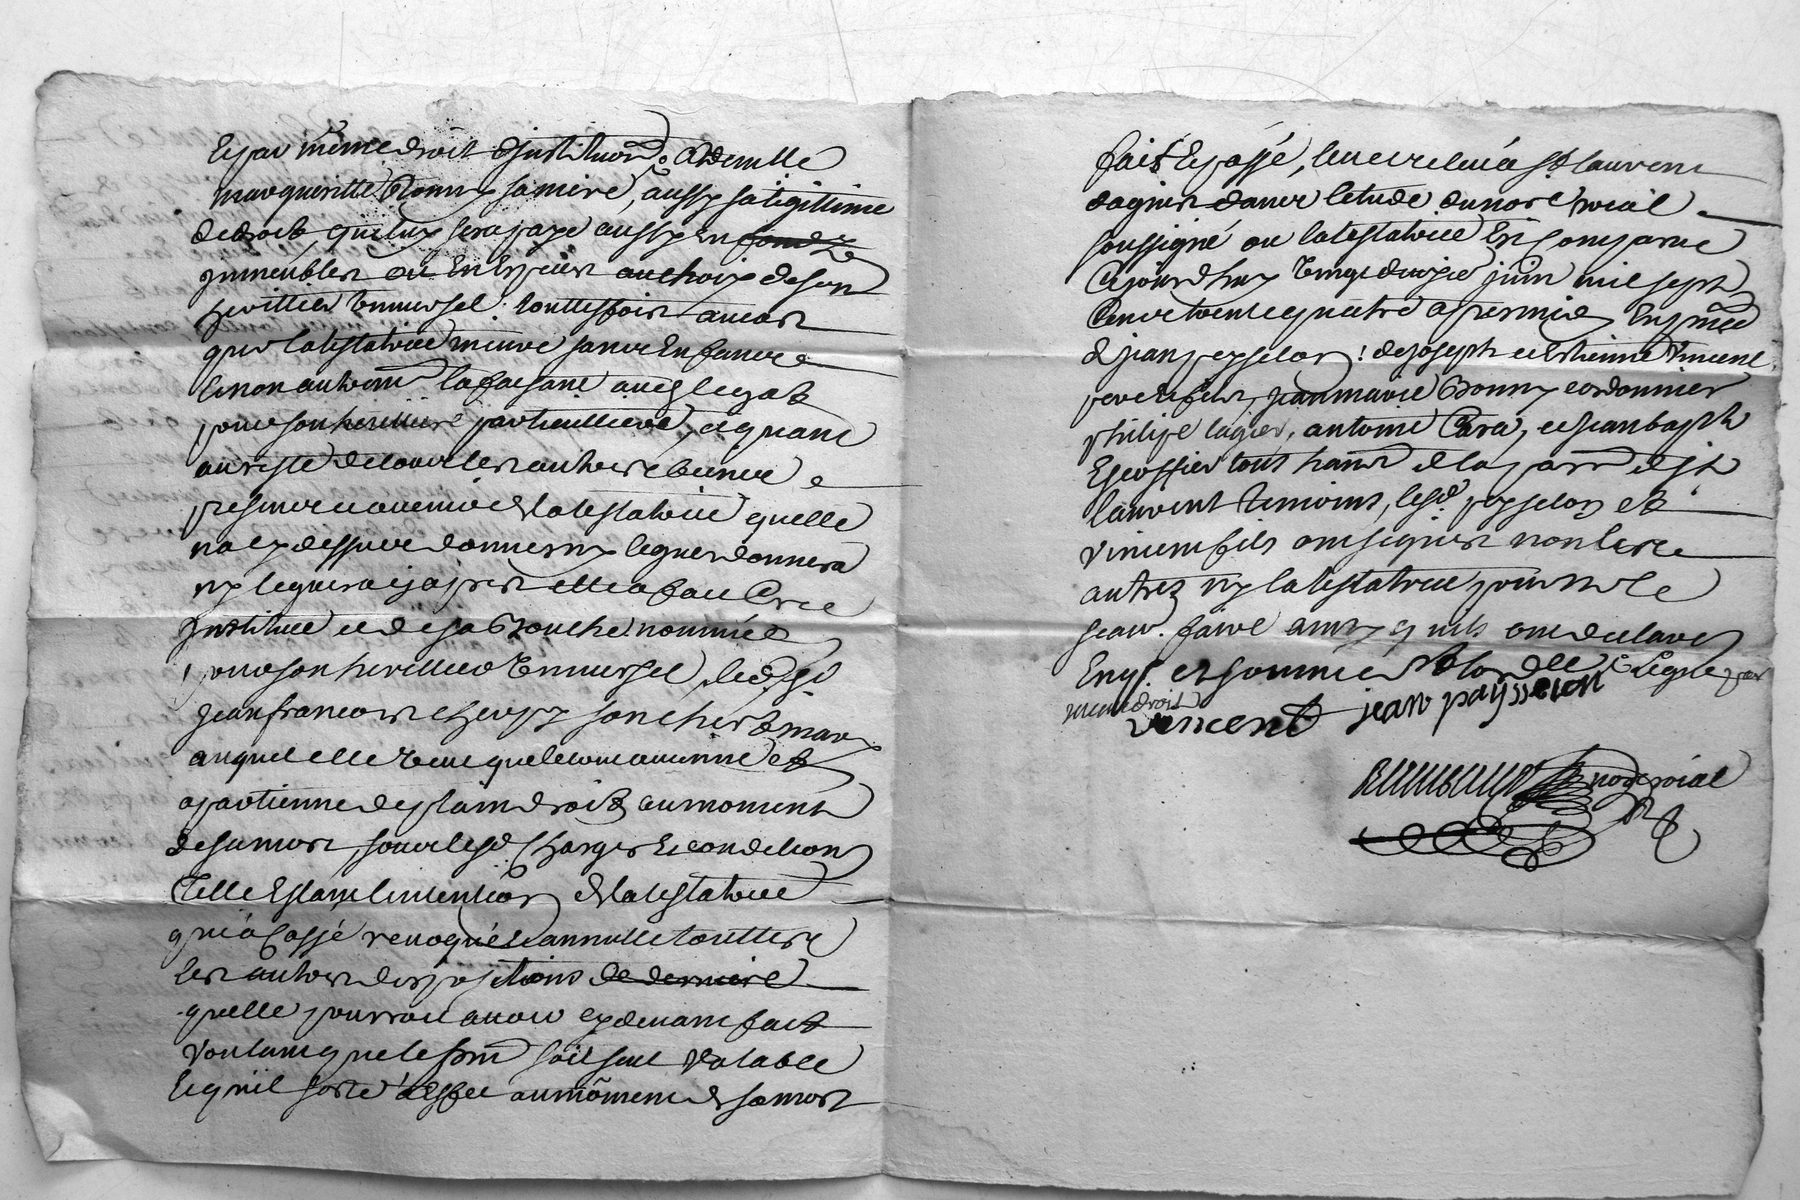 Et par mesme droit d'institution a demlle
margueritte Bonny sa mere, aussy sa legittime
de droit, qui luy sera paye aussy en fond ze
ymmeubles ou en espeies au choix de son
herittier unniversel. touttesfois au cas
que la testatrice meure sans enfants
le non autrem la faisant aud legat
pour son herittiere particulliere, et quant
au reste de tous les autres biens
presents et avenir de la testatrice quelle
na cy dessus donnes ny legues donnera
ny leguera cy apres elle a fait Cree
jnstitue et de sa Bouche nommée
pour son herittier unniversel, led sr
jean francois chuzy son cher mary
auquel elle veut que le tout avienne et
apartienne de plain droit au moment
de sa mort, sous lesd Charges et condetions
Telle estant lintention de la testatrice
qui a Cassé revoqué et annulle touttes
les autres dispositions de derniere
quelle pourroit avoir cy devant fait
voulant que le pnt soit seul valable
Et quil sorte a effet au moment de sa mort
fait Et passé, leu et releu a st laurent
dagnis dans letude du nore roial
soussigné ou la testatrice Est comparue
Cejourdhuy vingt deuxie juin mil sept
Cent trente quattre apres midy En pnce
de jean peysselon, de joseph et estienne vincent
pere et fils, jean marie Bonny cordonnier
philipe lagier, antoine Cara, et jean bapte
Escoffier tous habns de la parr de st
laurent temoins, lesd peysselon et
vincent fils ont signes non les
autres ny la testatrice pour ne le
scav. faire ainsy quils ont declares
Enqs. et sommes
vincent jean paÿsselon
nore roial